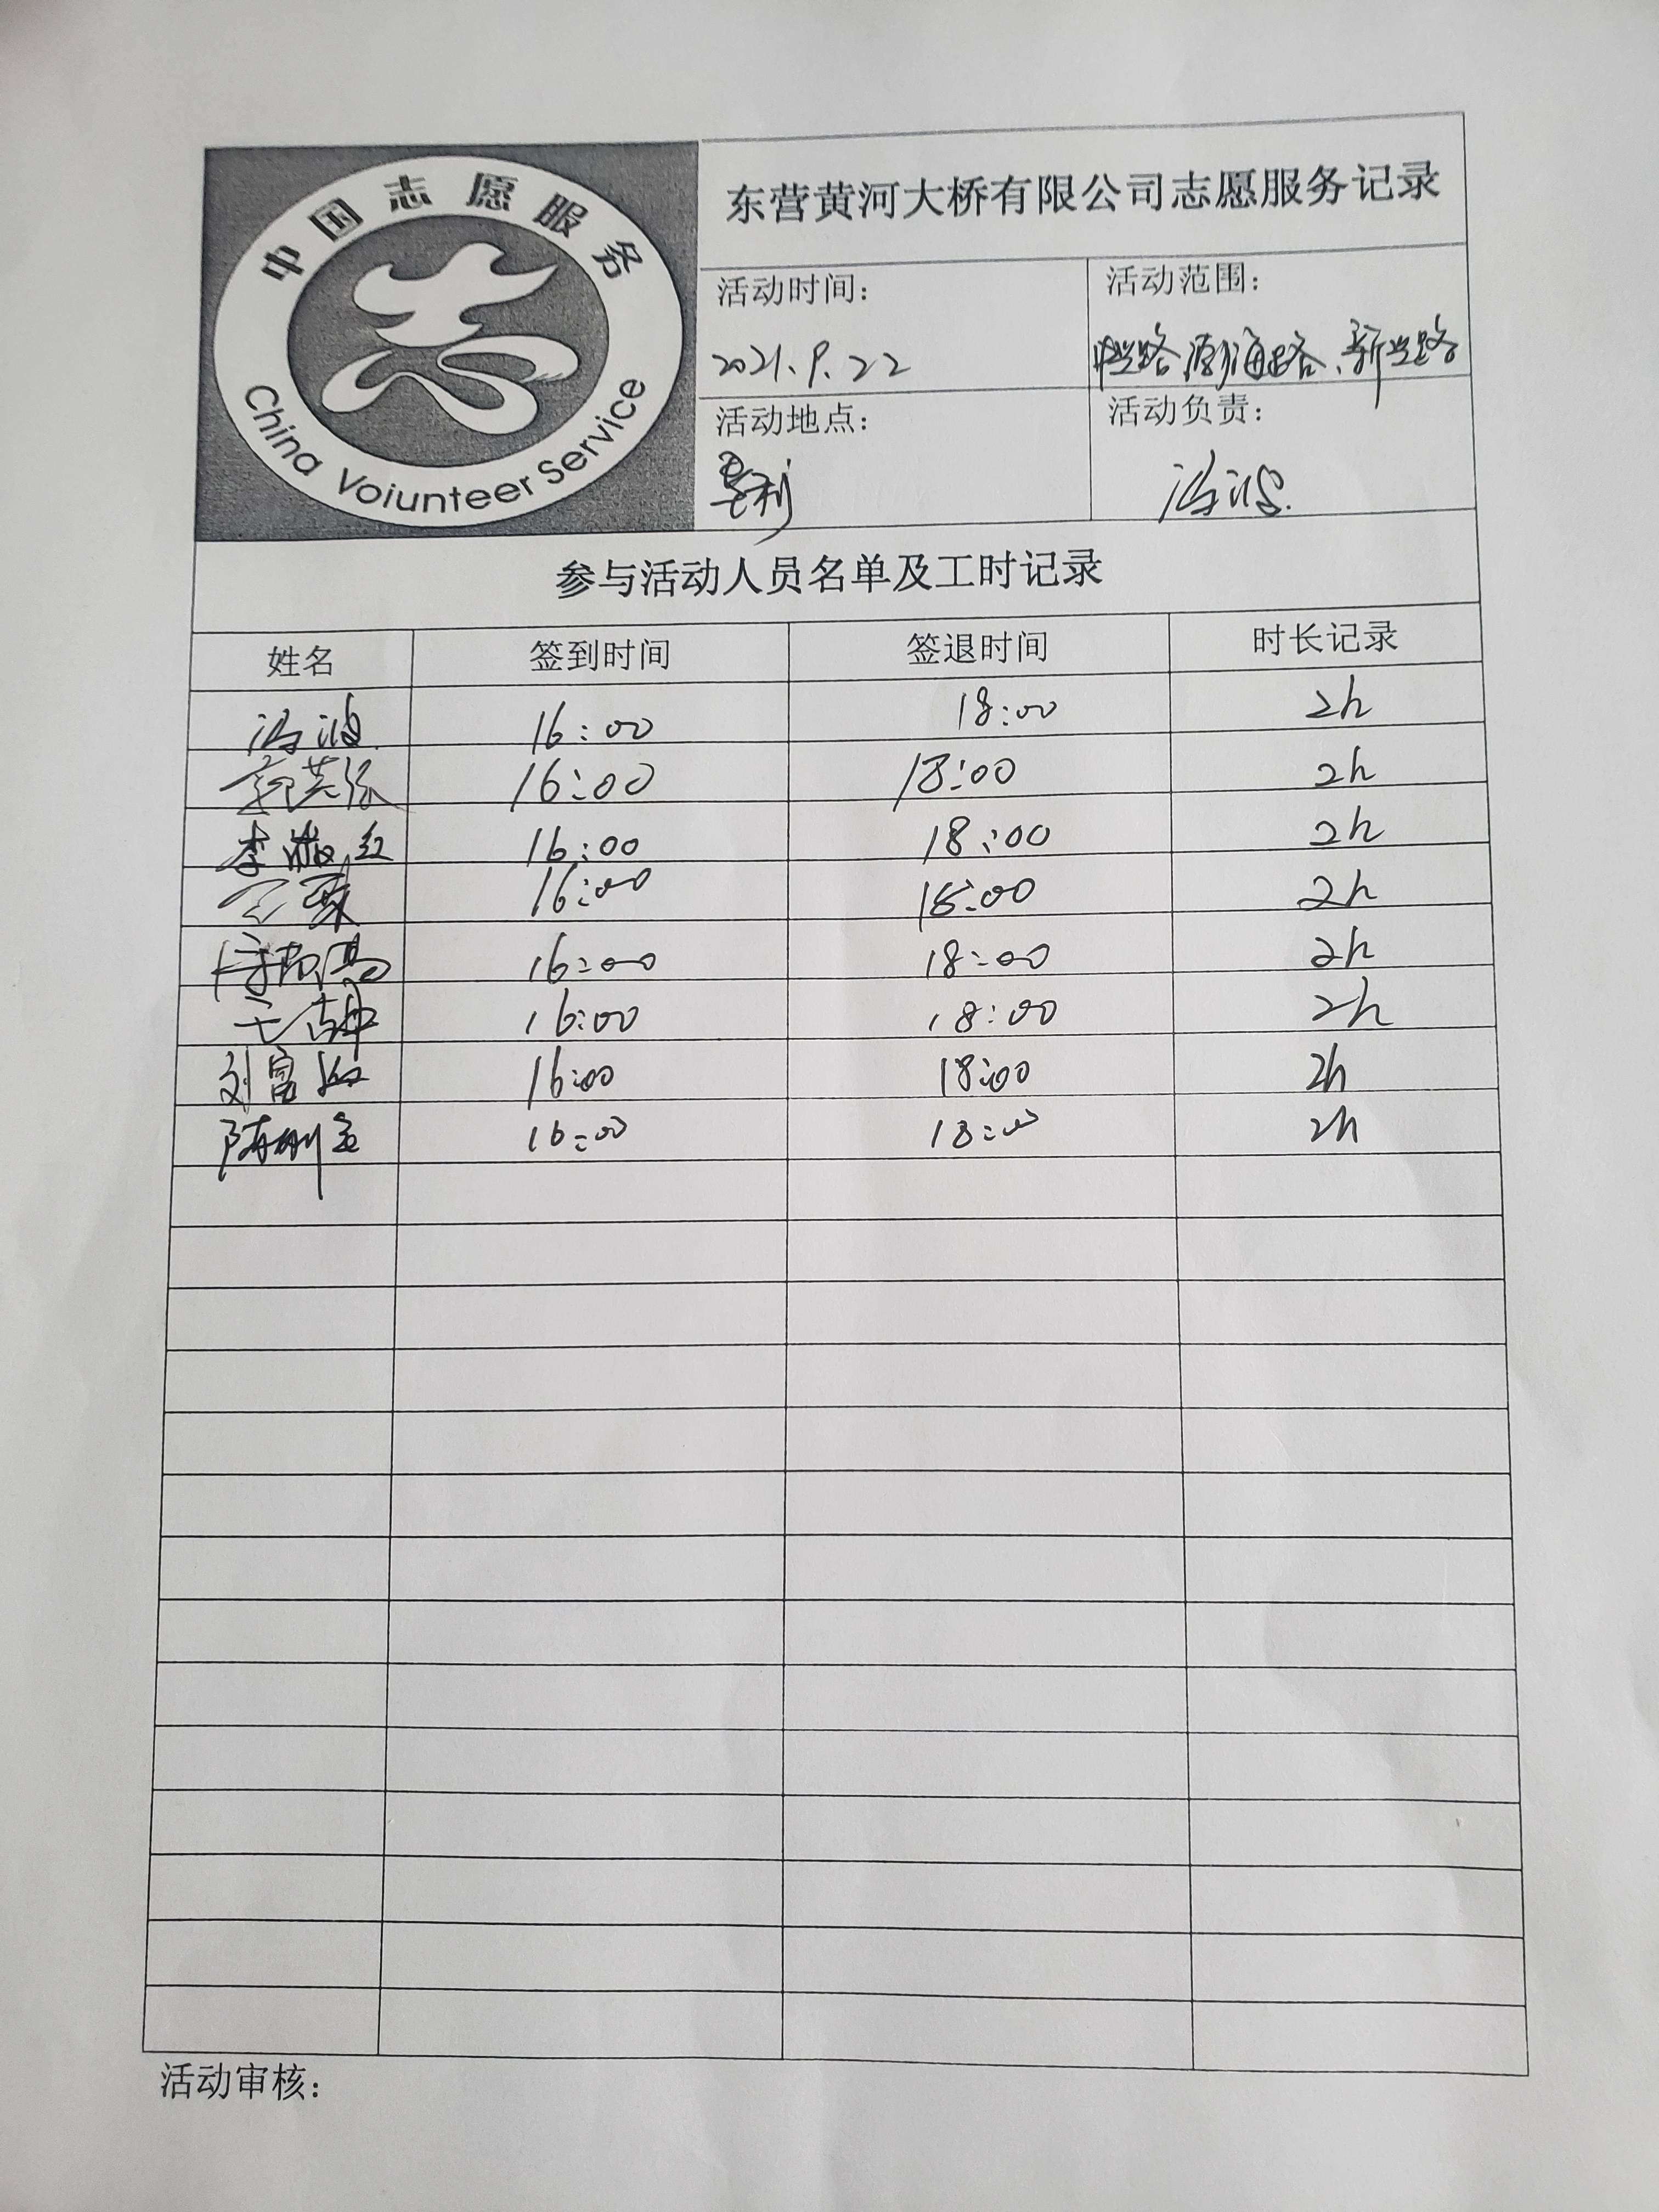 中国志愿服务
China Voiunteer Service
东营黄河大桥有限公司志愿服务记录
活动时间：
活动范围：
2021.9.22
新兴路
活动地点：
活动负责：
垦利
冯波
参与活动人员名单及工时记录
姓名 签到时间 签退时间 时长记录
冯波 16:00 18:00 2h
16:00 18:00 2h
李淑红 16:00 18:00 2h
16:00 18:00 2h
16:00 18:00 2h
16:00 18:00 2h
刘富 16:00 18:00 2h
16:00 18:00 2h
活动审核：